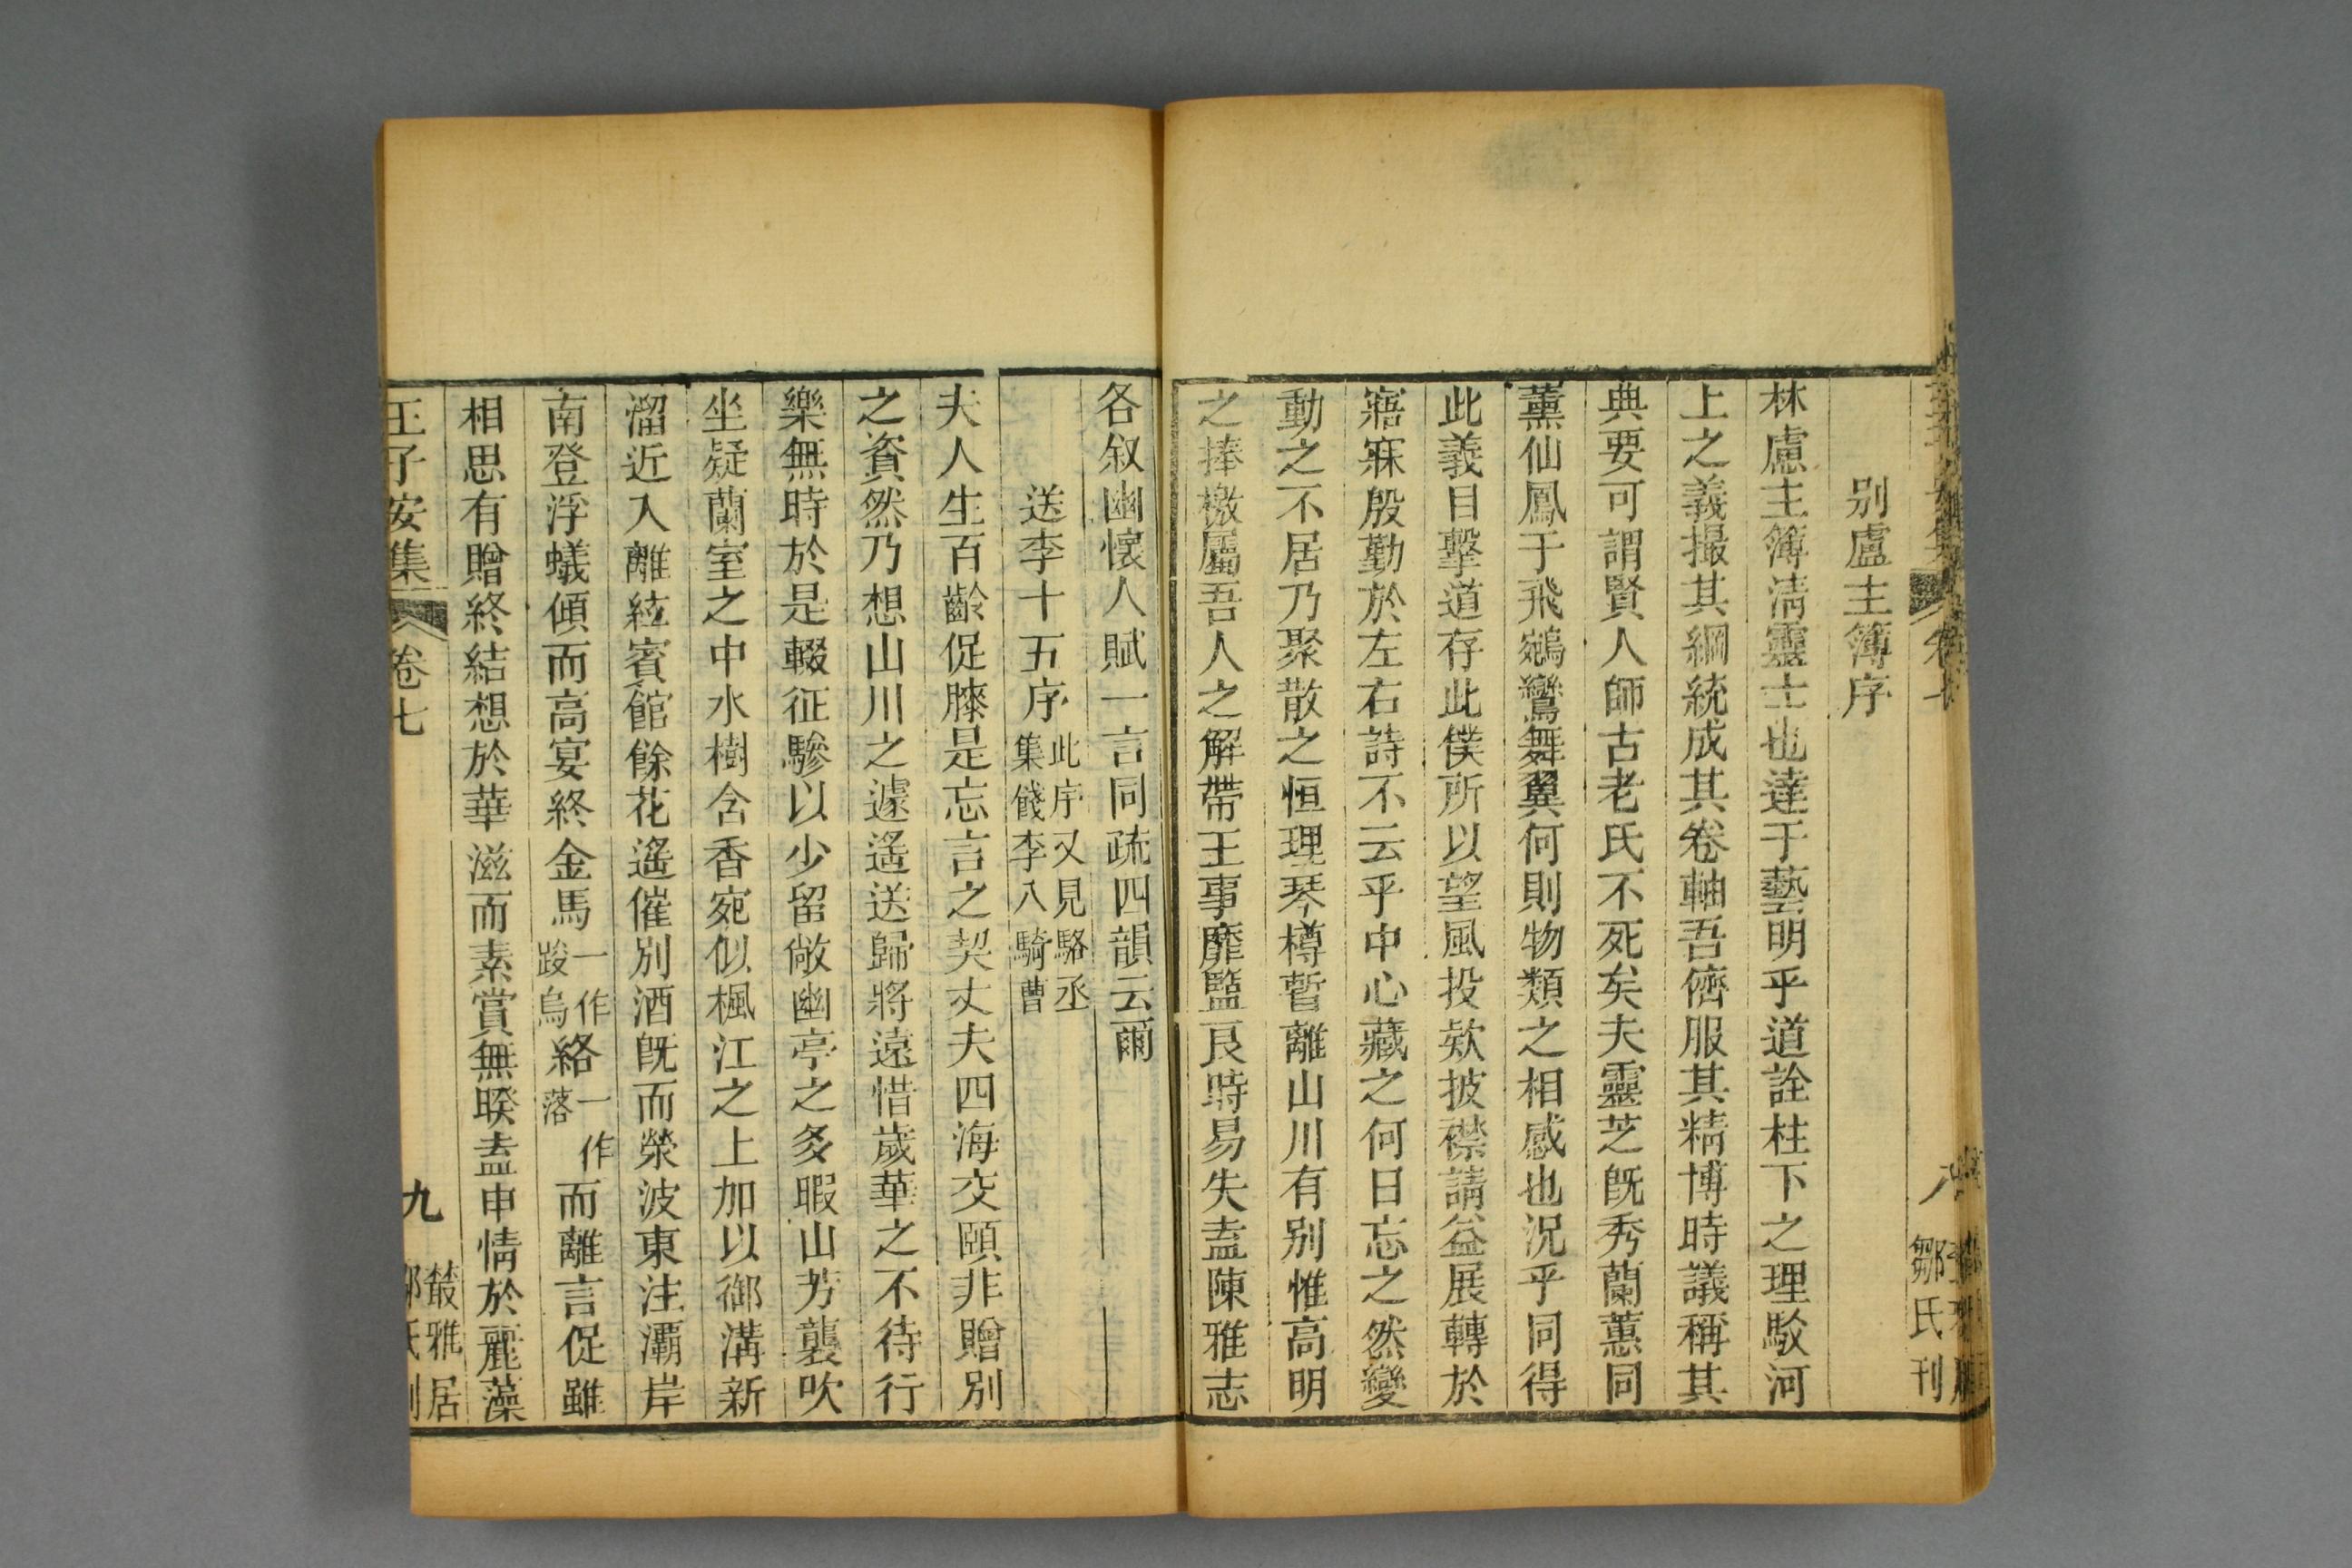 別盧主簿序
林慮主簿淸靈士也達于藝明乎道詮柱下之理駁河
上之義撮其綱統成其卷軸吾儕服其精博時議稱其
典要可謂賢人師古老氏不死矣夫靈芝旣秀蘭蕙同
薰仙鳳于飛鵷鸞舞翼何則物類之相感也況乎同得
此義目擊道存此僕所以望風投欵披襟請益展轉於
寤寐殷勤於左右詩不云乎中心藏之何日忘之然變
動之不居乃聚散之恒理琴樽暫離山川有別惟高明
之捧檄屬吾人之解帶王事靡盬良時易失盍陳雅志
鄒氏刊
各叙幽懷人賦一言同疏四韻云爾
送李十五序此序又見駱丞集餞李八騎曹
夫人生百齡促膝是忘言之契丈夫四海交頤非贈別
之資然乃想山川之遽遙送歸將遠惜歲華之不待行
樂無時於是輟征驂以少留敞幽亭之多暇山芳襲吹
坐疑蘭室之中水樹含香宛似楓江之上加以御溝新
溜近入離絃賓館餘花遙催別酒旣而滎波東注灞岸
南登浮蟻傾而高宴終金馬一作踆烏絡一作落而離言促雖
相思有贈終結想於華滋而素賞無暌盍申情於麗藻
王子安集
卷七
九
叢雅居
鄒氏刊